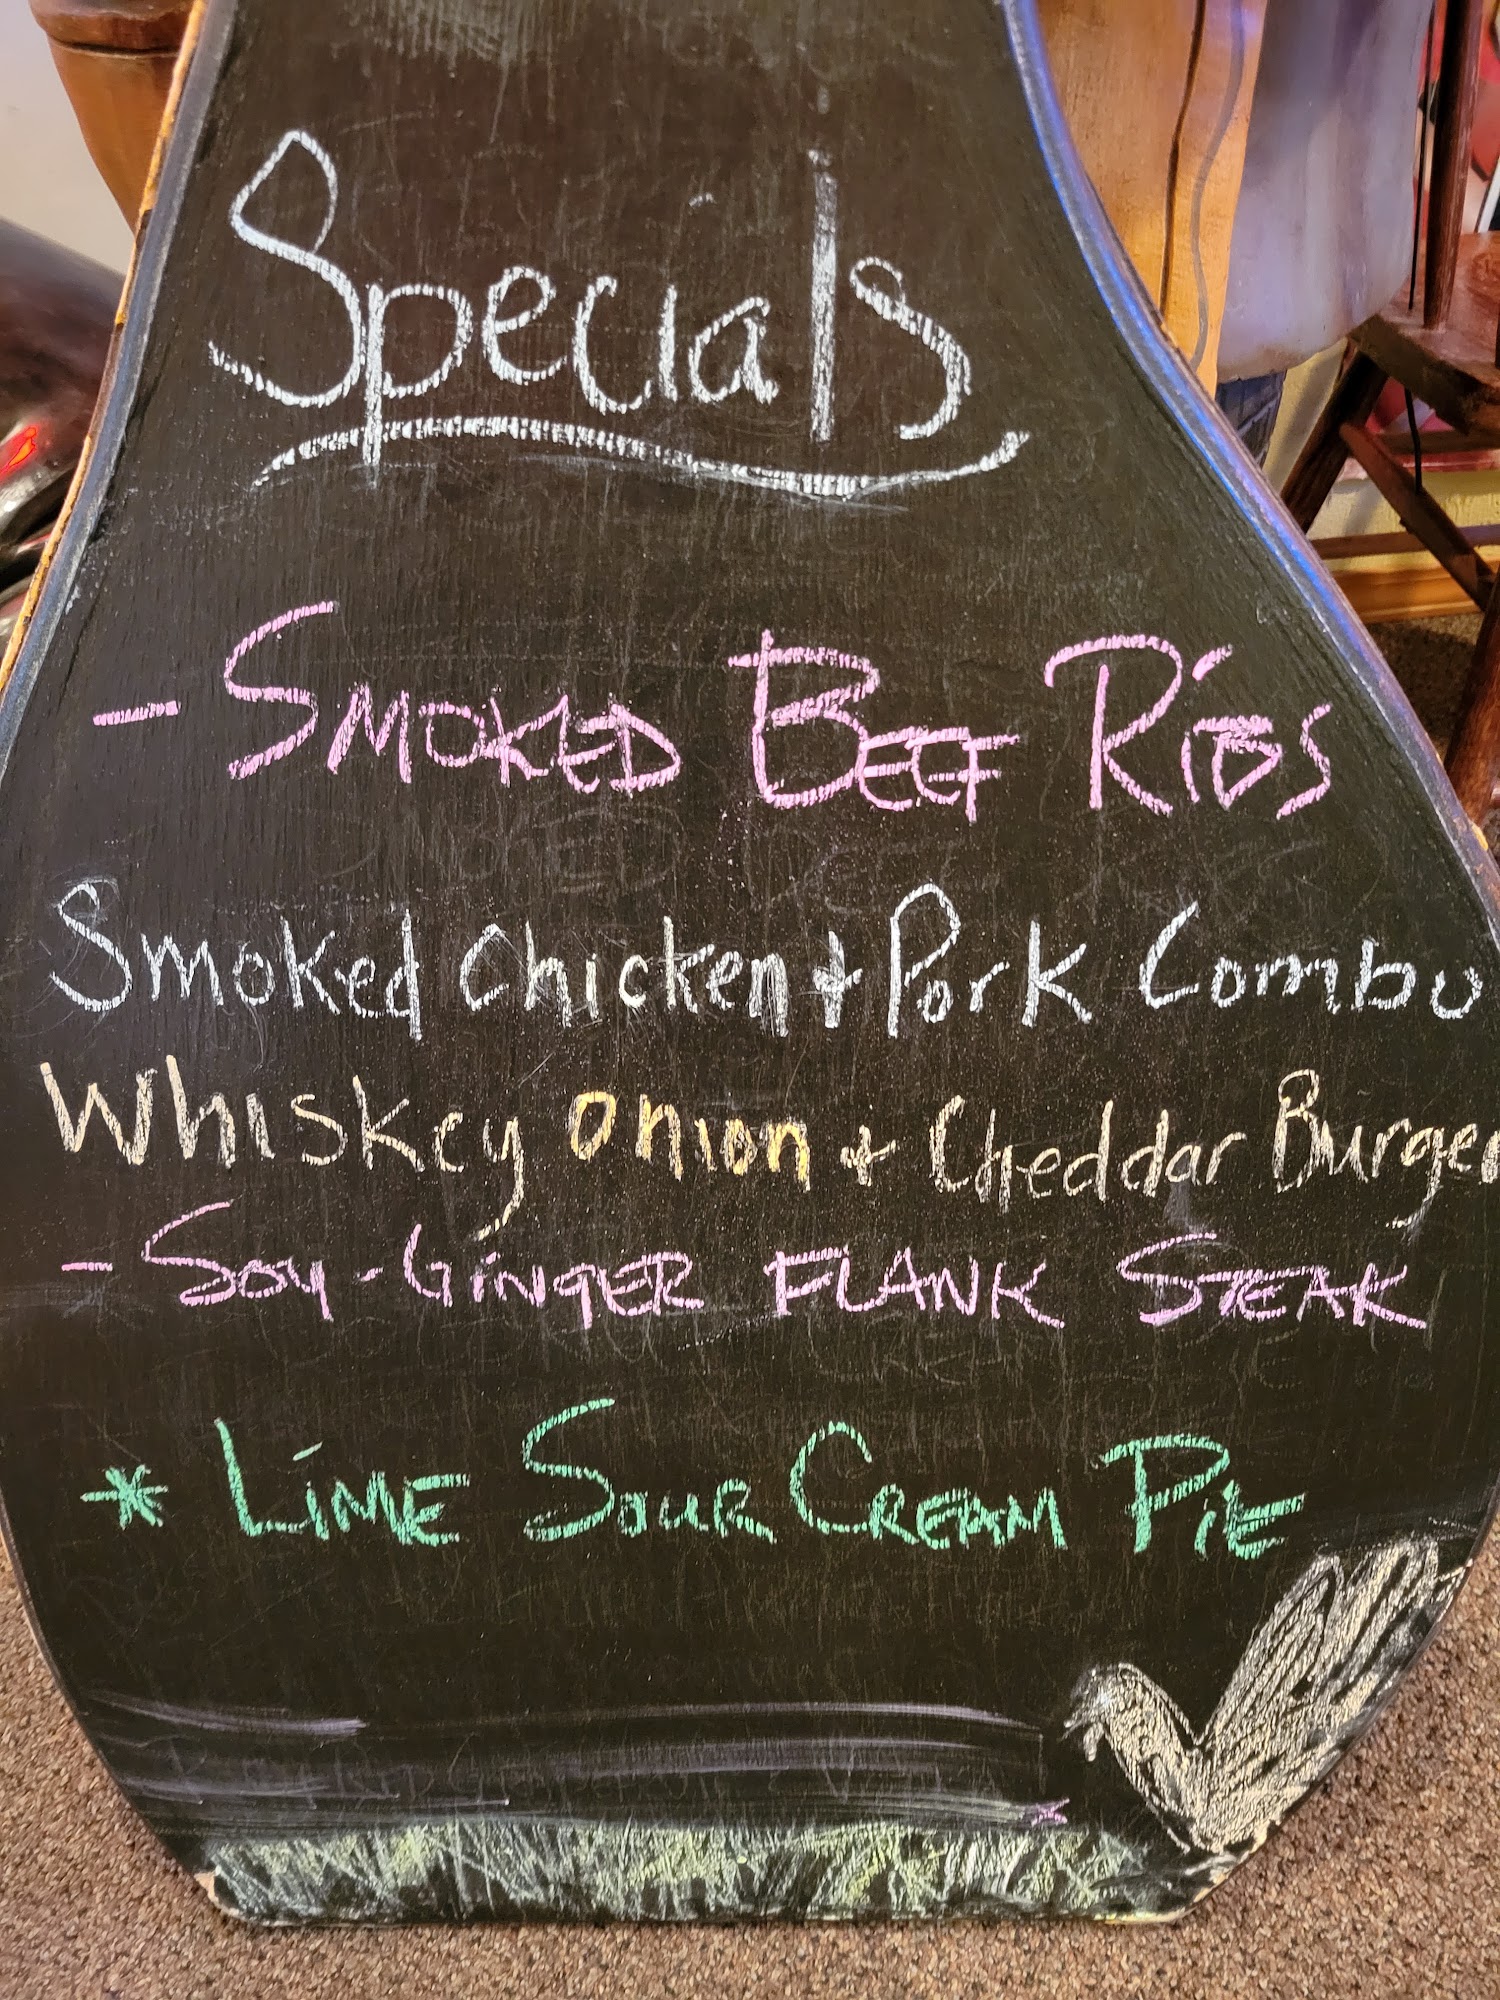 Specials
- Smoked Beef Ribs
Smoked Chicken + Pork Combo
Whiskey Onion + Cheddar Burger
- Soy-Ginger Flank Steak
* Lime Sour Cream Pie